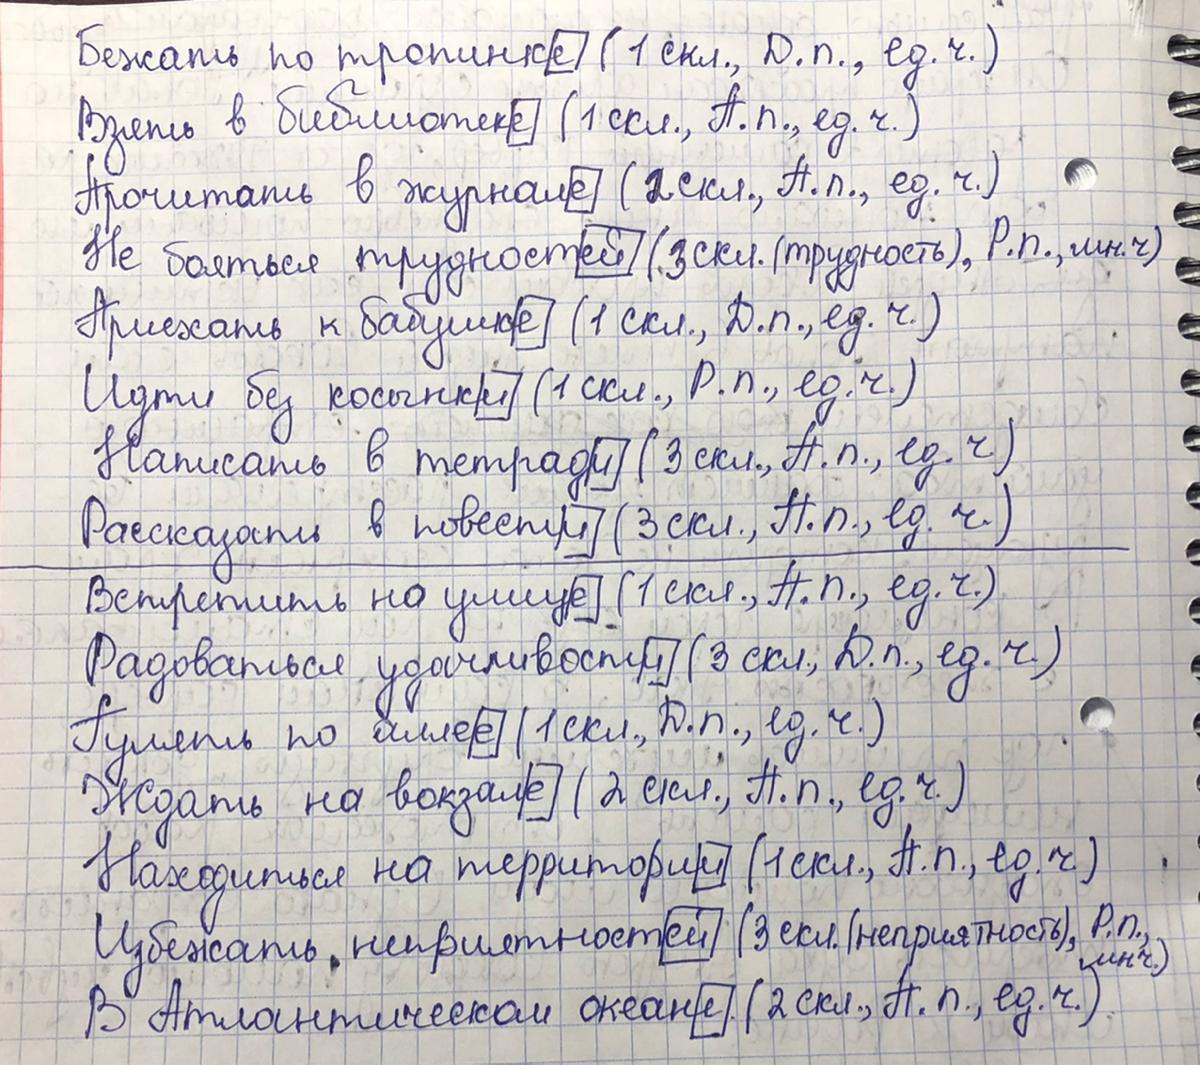 Бежать по тропинке (1 скл., Д.п., ед.ч.)
Взять в библиотеке (1 скл., П.п., ед.ч.)
Прочитать в журнале (2 скл., П.п., ед.ч.)
Не бояться трудностей (3 скл. (трудность), Р.п., мн.ч)
Приехать к бабушке (1 скл., Д.п., ед.ч.)
Идти без косынки (1 скл., Р.п., ед.ч.)
Написать в тетради (3 скл., П.п., ед.ч.)
Рассказать в повести (3 скл., П.п., ед.ч.)
Встретить на улице (1 скл., П.п., ед.ч.)
Радоваться удачливости (3 скл., Д.п., ед.ч.)
Гулять по аллее (1 скл., Д.п., ед.ч.)
Ждать на вокзале (2 скл., П.п., ед.ч.)
Находиться на территории (1 скл., П.п., ед.ч.)
Избежать неприятностей (3 скл. (неприятность), Р.п., мн.ч.)
В Атлантическом океане (2 скл., П.п., ед.ч.)